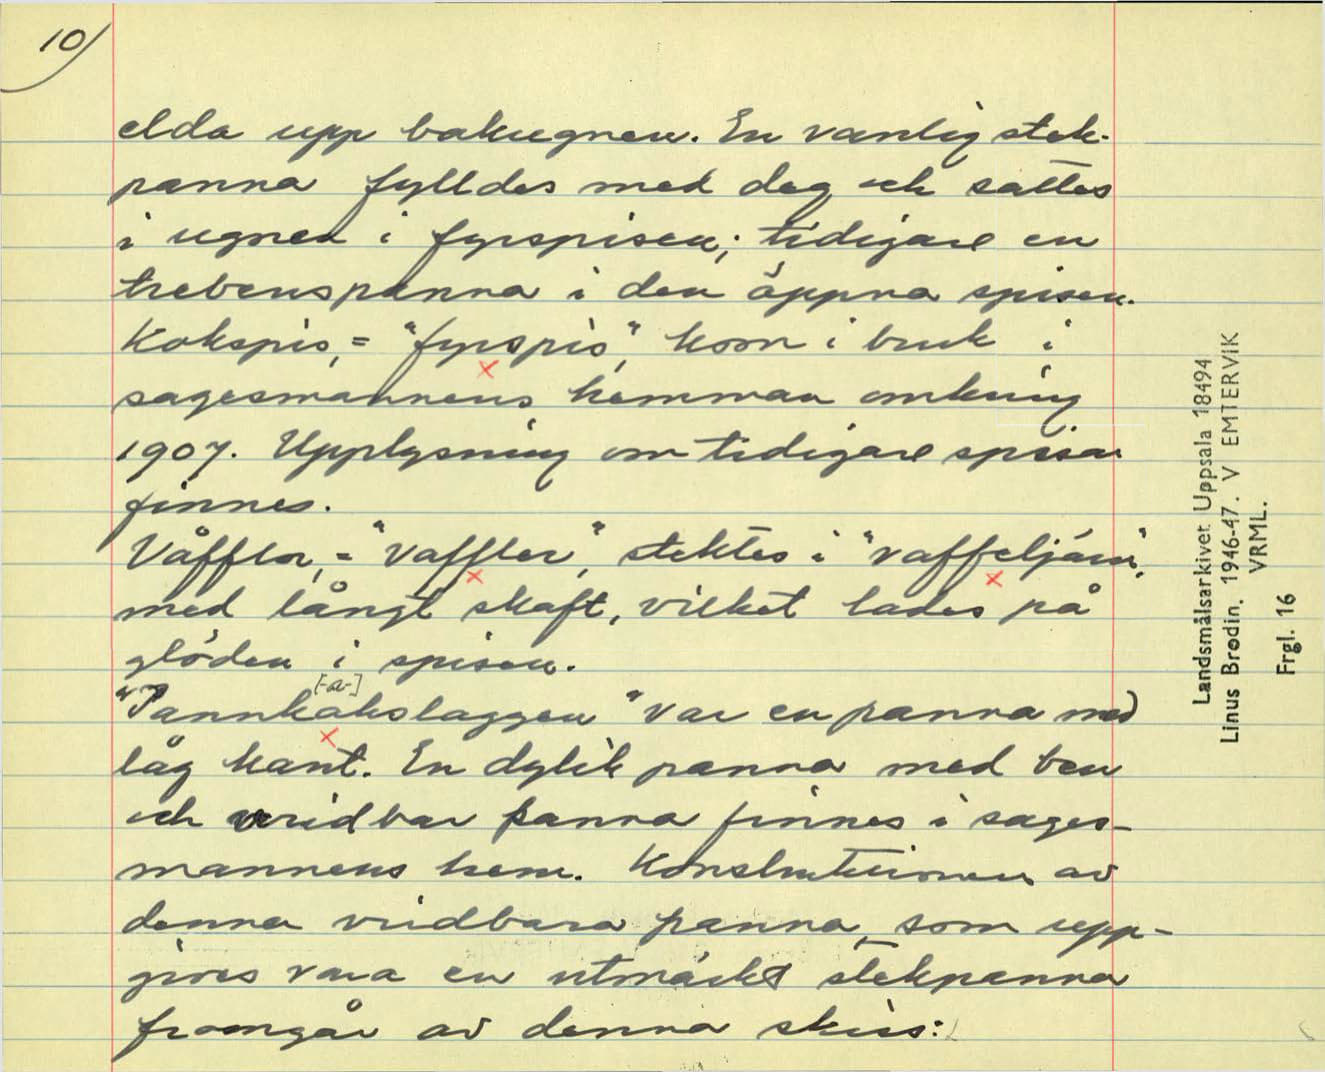 10)
elda upp bakugnen. En vanlig stek-
panna fylldes med deg och sattes
i ugnen i fyrspisen; tidigare en
trebenspanna i den öppna spisen.
Kokspis, = "fyrspis", kom i bruk i
sagesmannens hemman omkring
1907. Upplysning om tidigare spisar
finnes.
Våfflor, = "vaffler", stektes i "vaffeljärn",
med långt skaft, vilket lades på
glöden i spisen.
[-a-]
"Pannkakslaggen" var en panna med
låg kant. En dylik panna med ben
och vridbar panna finnes i sages-
mannens hem. Konstruktionen av
denna vridbara panna, som upp-
gives vara en utmärkt stekpanna
framgår av denna skiss:
Landsmålsarkivet Uppsala 18494
Linus Brodin. 1946-47. V EMTERVIK
VRML.
Frgl. 16